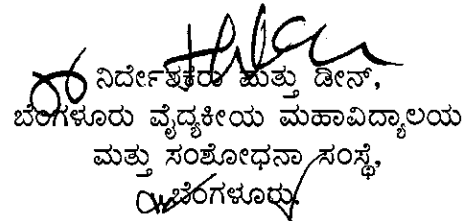 ನಿರ್ದೇಶಕರು ಮತ್ತು ಡೀನ್,
ಬೆಂಗಳೂರು ವೈದ್ಯಕೀಯ ಮಹಾವಿದ್ಯಾಲಯ
ಮತ್ತು ಸಂಶೋಧನಾ ಸಂಸ್ಥೆ,
ಬೆಂಗಳೂರು.